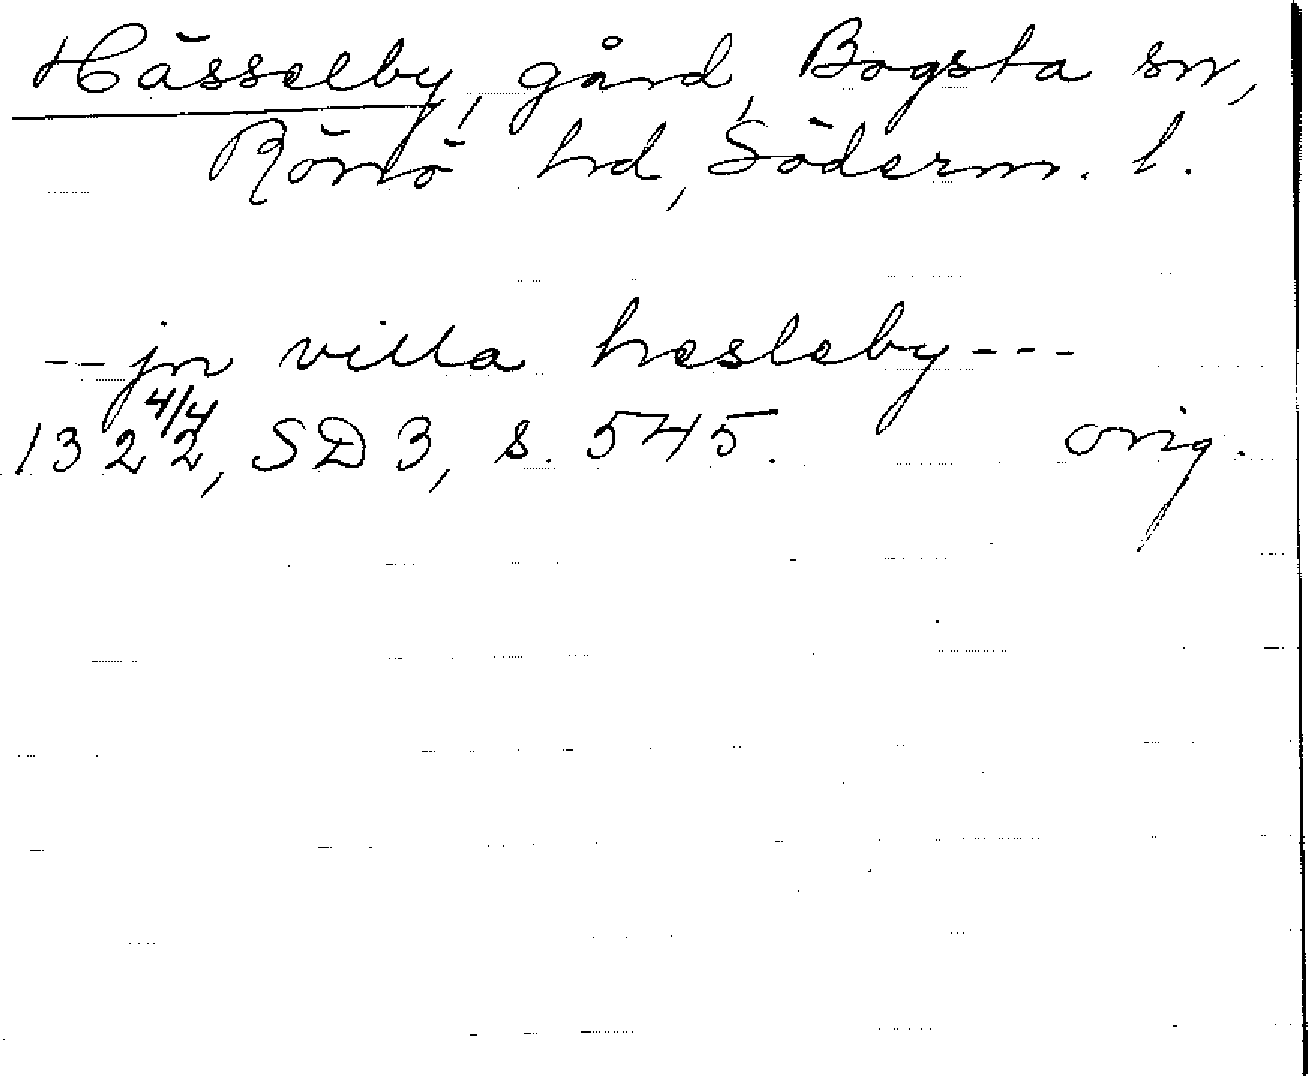 Hässelby, gård, Bogsta sn,
Rönö hd, Söderm. l.
-- jn villa hesleby ---
1322 4/4, SD 3, s. 545. orig.